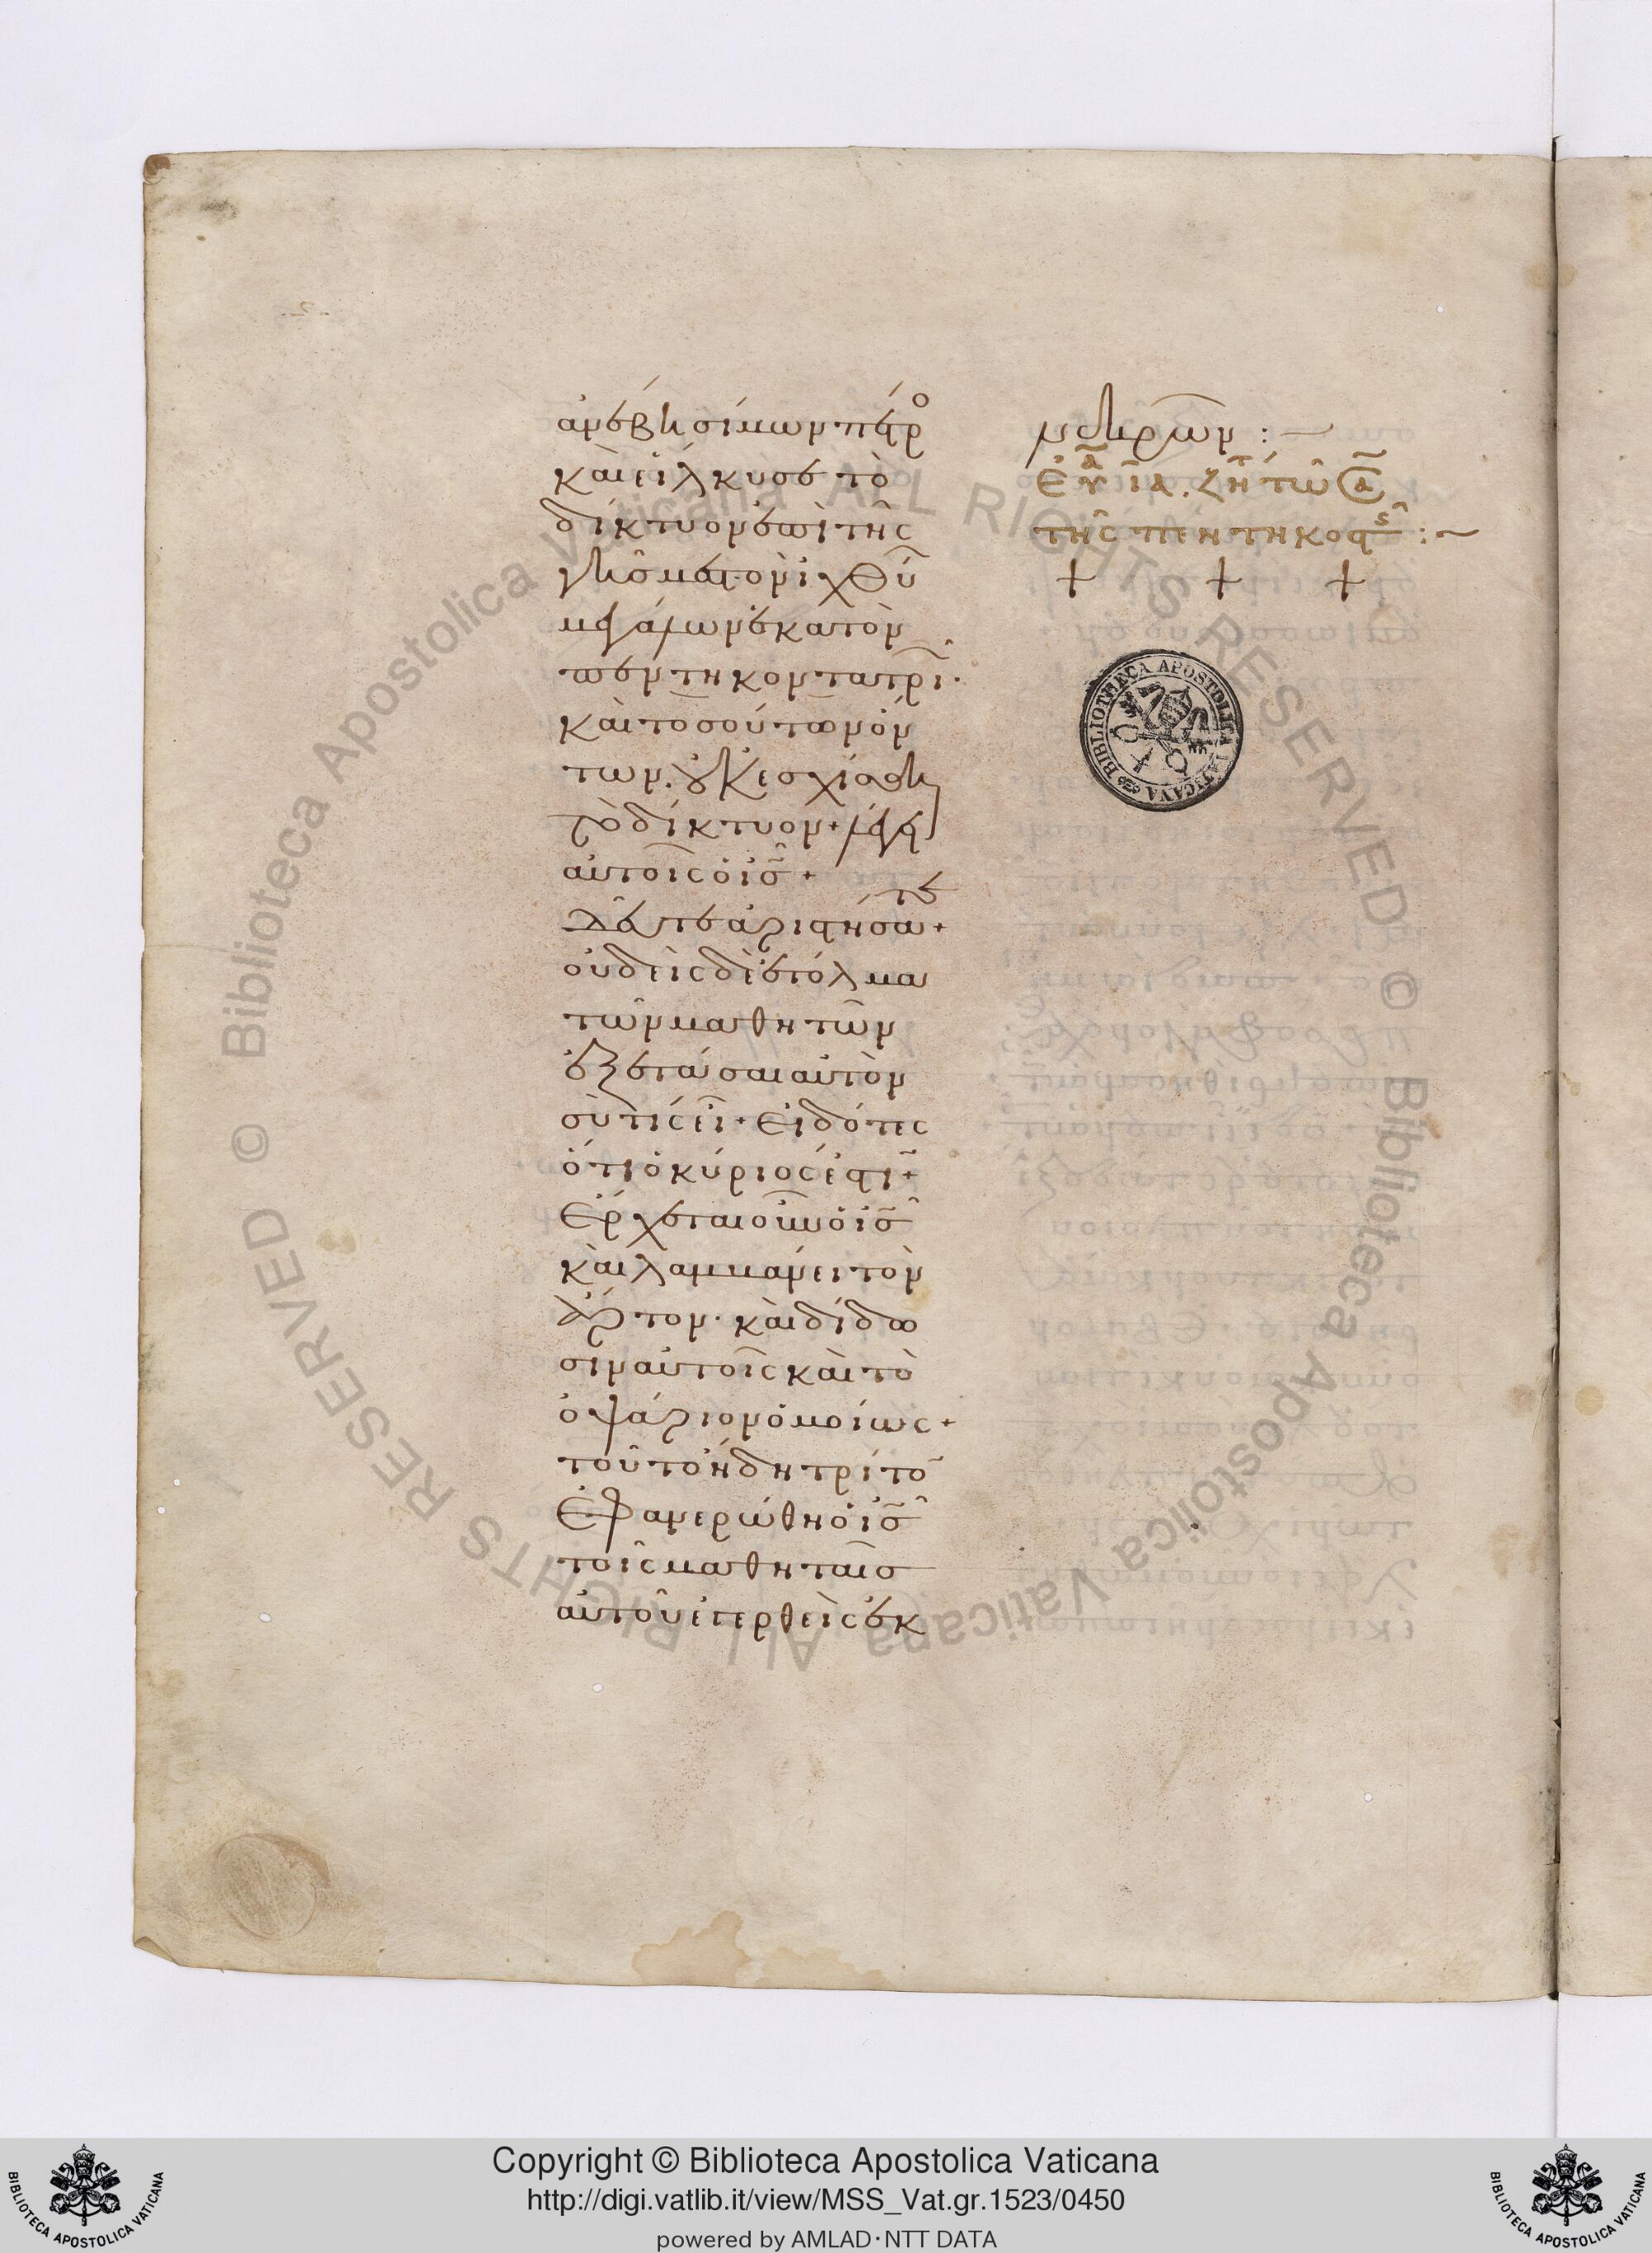 ἀνέβη σίμων πέτρο
καὶ εἵλκυσε τὸ
δίκτυον ἐπὶ τῆς
γῆς μεστὸν ἰχθύ
μεγάλων ἑκατὸν
πεντηκοντατρι·
καὶ τοσούτων ὄν
των. οὐκ ἐσχίσθη
τὸ δίκτυον + λέγει
αὐτοῖς ὁ ις +
δεῦτε ἀριστήσατε +
οὐδεὶς δὲ ἐτόλμα
τῶν μαθητῶν
ἐξετάσαι αὐτὸν
σὺ τίς εἶ + εἰδότες
ὅτι ὁ κύριός ἐστι +
Ἔρχεται οὖν ὁ ις
καὶ λαμμάνει τὸν
ἄρτον· καὶ δίδω
σιν αὐτοῖς καὶ τὸ
ὀψάριον ὁμοίως +
τοῦτο ἤδη τρίτο
Ἐφανερώθη ὁ ις
τοῖς μαθηταῖς
αὐτοῦ ἐγερθεὶς ἐκ
νεκρῶν :~
ια. ζητ τῶ α
τῆς πεντηκοστ :~
+ + +
BIBLIOTHECA APOSTOLICA VATICANA
© Biblioteca Apostolica Vaticana ALL RIGHTS RESERVED © Biblioteca Apostolica Vaticana ALL RIGHTS RESERVED
Copyright © Biblioteca Apostolica Vaticana
http://digi.vatlib.it/view/MSS_Vat.gr.1523/0450
powered by AMLAD·NTT DATA
BIBLIOTECA APOSTOLICA VATICANA
BIBLIOTECA APOSTOLICA VATICANA